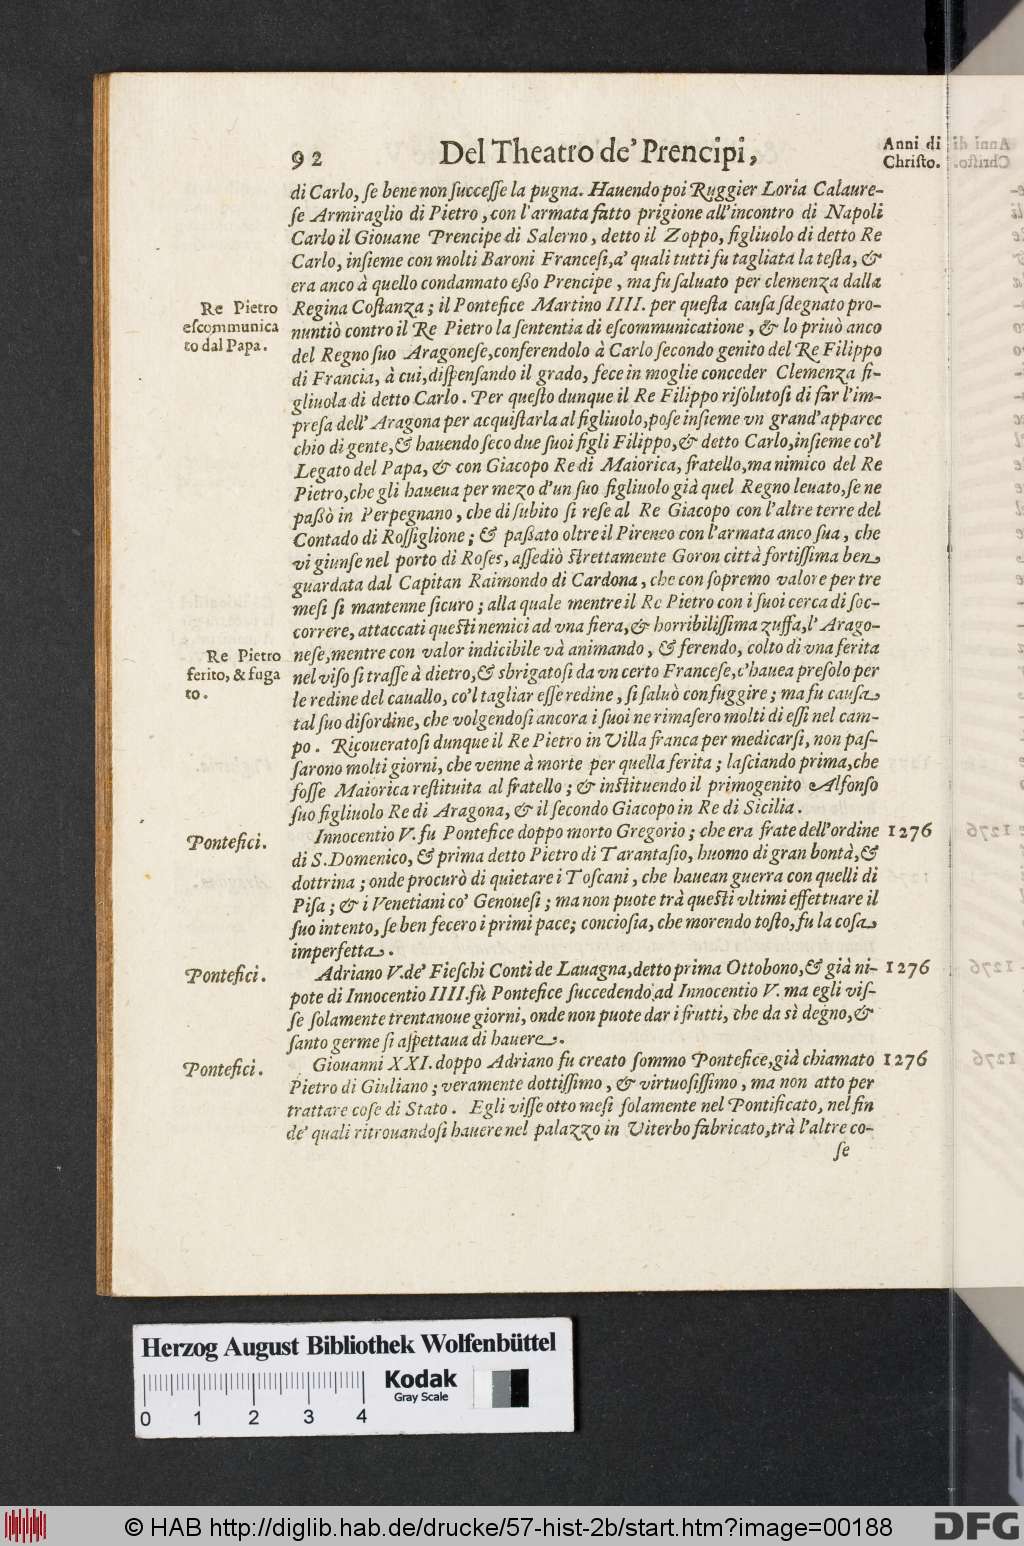 92 Del Theatro de' Prencipi, Anni di Christo.
di Carlo, ſe bene non ſucceſſe la pugna. Hauendo poi Ruggier Loria Calaure-
ſe Armiraglio di Pietro, con l'armata fatto prigione all'incontro di Napoli
Carlo il Giouane Prencipe di Salerno, detto il Zoppo, figliuolo di detto Re
Carlo, inſieme con molti Baroni Franceſi, a' quali tutti fu tagliata la teſta, &
era anco à quello condannato eßo Prencipe, ma fu ſaluato per clemenza dalla
Re Pietro
eſcommunica
to dal Papa.
Regina Coſtanza; il Pontefice Martino IIII. per queſta cauſa ſdegnato pro-
nuntiò contro il Re Pietro la ſententia di eſcommunicatione, & lo priuò anco
del Regno ſuo Aragoneſe, conferendolo à Carlo ſecondo genito del Re Filippo
di Francia, à cui, diſpenſando il grado, fece in moglie conceder Clemenza fi-
gliuola di detto Carlo. Per queſto dunque il Re Filippo riſolutoſi di far l'im-
preſa dell'Aragona per acquiſtarla al figliuolo, poſe inſieme vn grand'apparec
chio di gente, & hauendo ſeco due ſuoi figli Filippo, & detto Carlo, inſieme co'l
Legato del Papa, & con Giacopo Re di Maiorica, fratello, ma nimico del Re
Pietro, che gli haueua per mezo d'un ſuo figliuolo già quel Regno leuato, ſe ne
paßò in Perpegnano, che di ſubito ſi reſe al Re Giacopo con l'altre terre del
Contado di Roſſiglione; & paßato oltre il Pireneo con l'armata anco ſua, che
vi giunſe nel porto di Roſes, aſſediò ſtrettamente Goron città fortiſſima ben
guardata dal Capitan Raimondo di Cardona, che con ſopremo valore per tre
meſi ſi mantenne ſicuro; alla quale mentre il Re Pietro con i ſuoi cerca di ſoc-
correre, attaccati queſti nemici ad vna fiera, & horribiliſſima zuffa, l'Arago-
Re Pietro
ferito, & fuga
to.
neſe, mentre con valor indicibile và animando, & ferendo, colto di vna ferita
nel viſo ſi traſſe à dietro, & sbrigatoſi da vn certo Franceſe, c'hauea preſolo per
le redine del cauallo, co'l tagliar eſſe redine, ſi ſaluò con fuggire; ma fu cauſa
tal ſuo diſordine, che volgendoſi ancora i ſuoi ne rimaſero molti di eſſi nel cam-
po. Ricoueratoſi dunque il Re Pietro in Villa franca per medicarſi, non paſ-
ſarono molti giorni, che venne à morte per quella ferita; laſciando prima, che
foſſe Maiorica reſtituita al fratello; & inſtituendo il primogenito Alfonſo
ſuo figliuolo Re di Aragona, & il ſecondo Giacopo in Re di Sicilia.
Pontefici. Innocentio V. fu Pontefice doppo morto Gregorio; che era frate dell'ordine 1276
di S. Domenico, & prima detto Pietro di Tarantaſio, huomo di gran bontà, &
dottrina; onde procurò di quietare i Toſcani, che hauean guerra con quelli di
Piſa; & i Venetiani co' Genoueſi; ma non puote trà queſti vltimi effettuare il
ſuo intento, ſe ben fecero i primi pace; concioſia, che morendo toſto, fu la coſa
imperfetta.
Pontefici. Adriano V. de' Fieſchi Conti de Lauagna, detto prima Ottobono, & già ni- 1276
pote di Innocentio IIII. fù Pontefice ſuccedendo ad Innocentio V. ma egli viſ-
ſe ſolamente trentanoue giorni, onde non puote dar i frutti, che da sì degno, &
ſanto germe ſi aſpettaua di hauere.
Pontefici. Giouanni XXI. doppo Adriano fu creato ſommo Pontefice, già chiamato 1276
Pietro di Giuliano; veramente dottiſſimo, & virtuoſiſſimo, ma non atto per
trattare coſe di Stato. Egli viſſe otto meſi ſolamente nel Pontificato, nel fin
de' quali ritrouandoſi hauere nel palazzo in Viterbo fabricato, trà l'altre co-
ſe
Herzog August Bibliothek Wolfenbüttel
0 1 2 3 4
Kodak
Gray Scale
© HAB http://diglib.hab.de/drucke/57-hist-2b/start.htm?image=00188
DFG